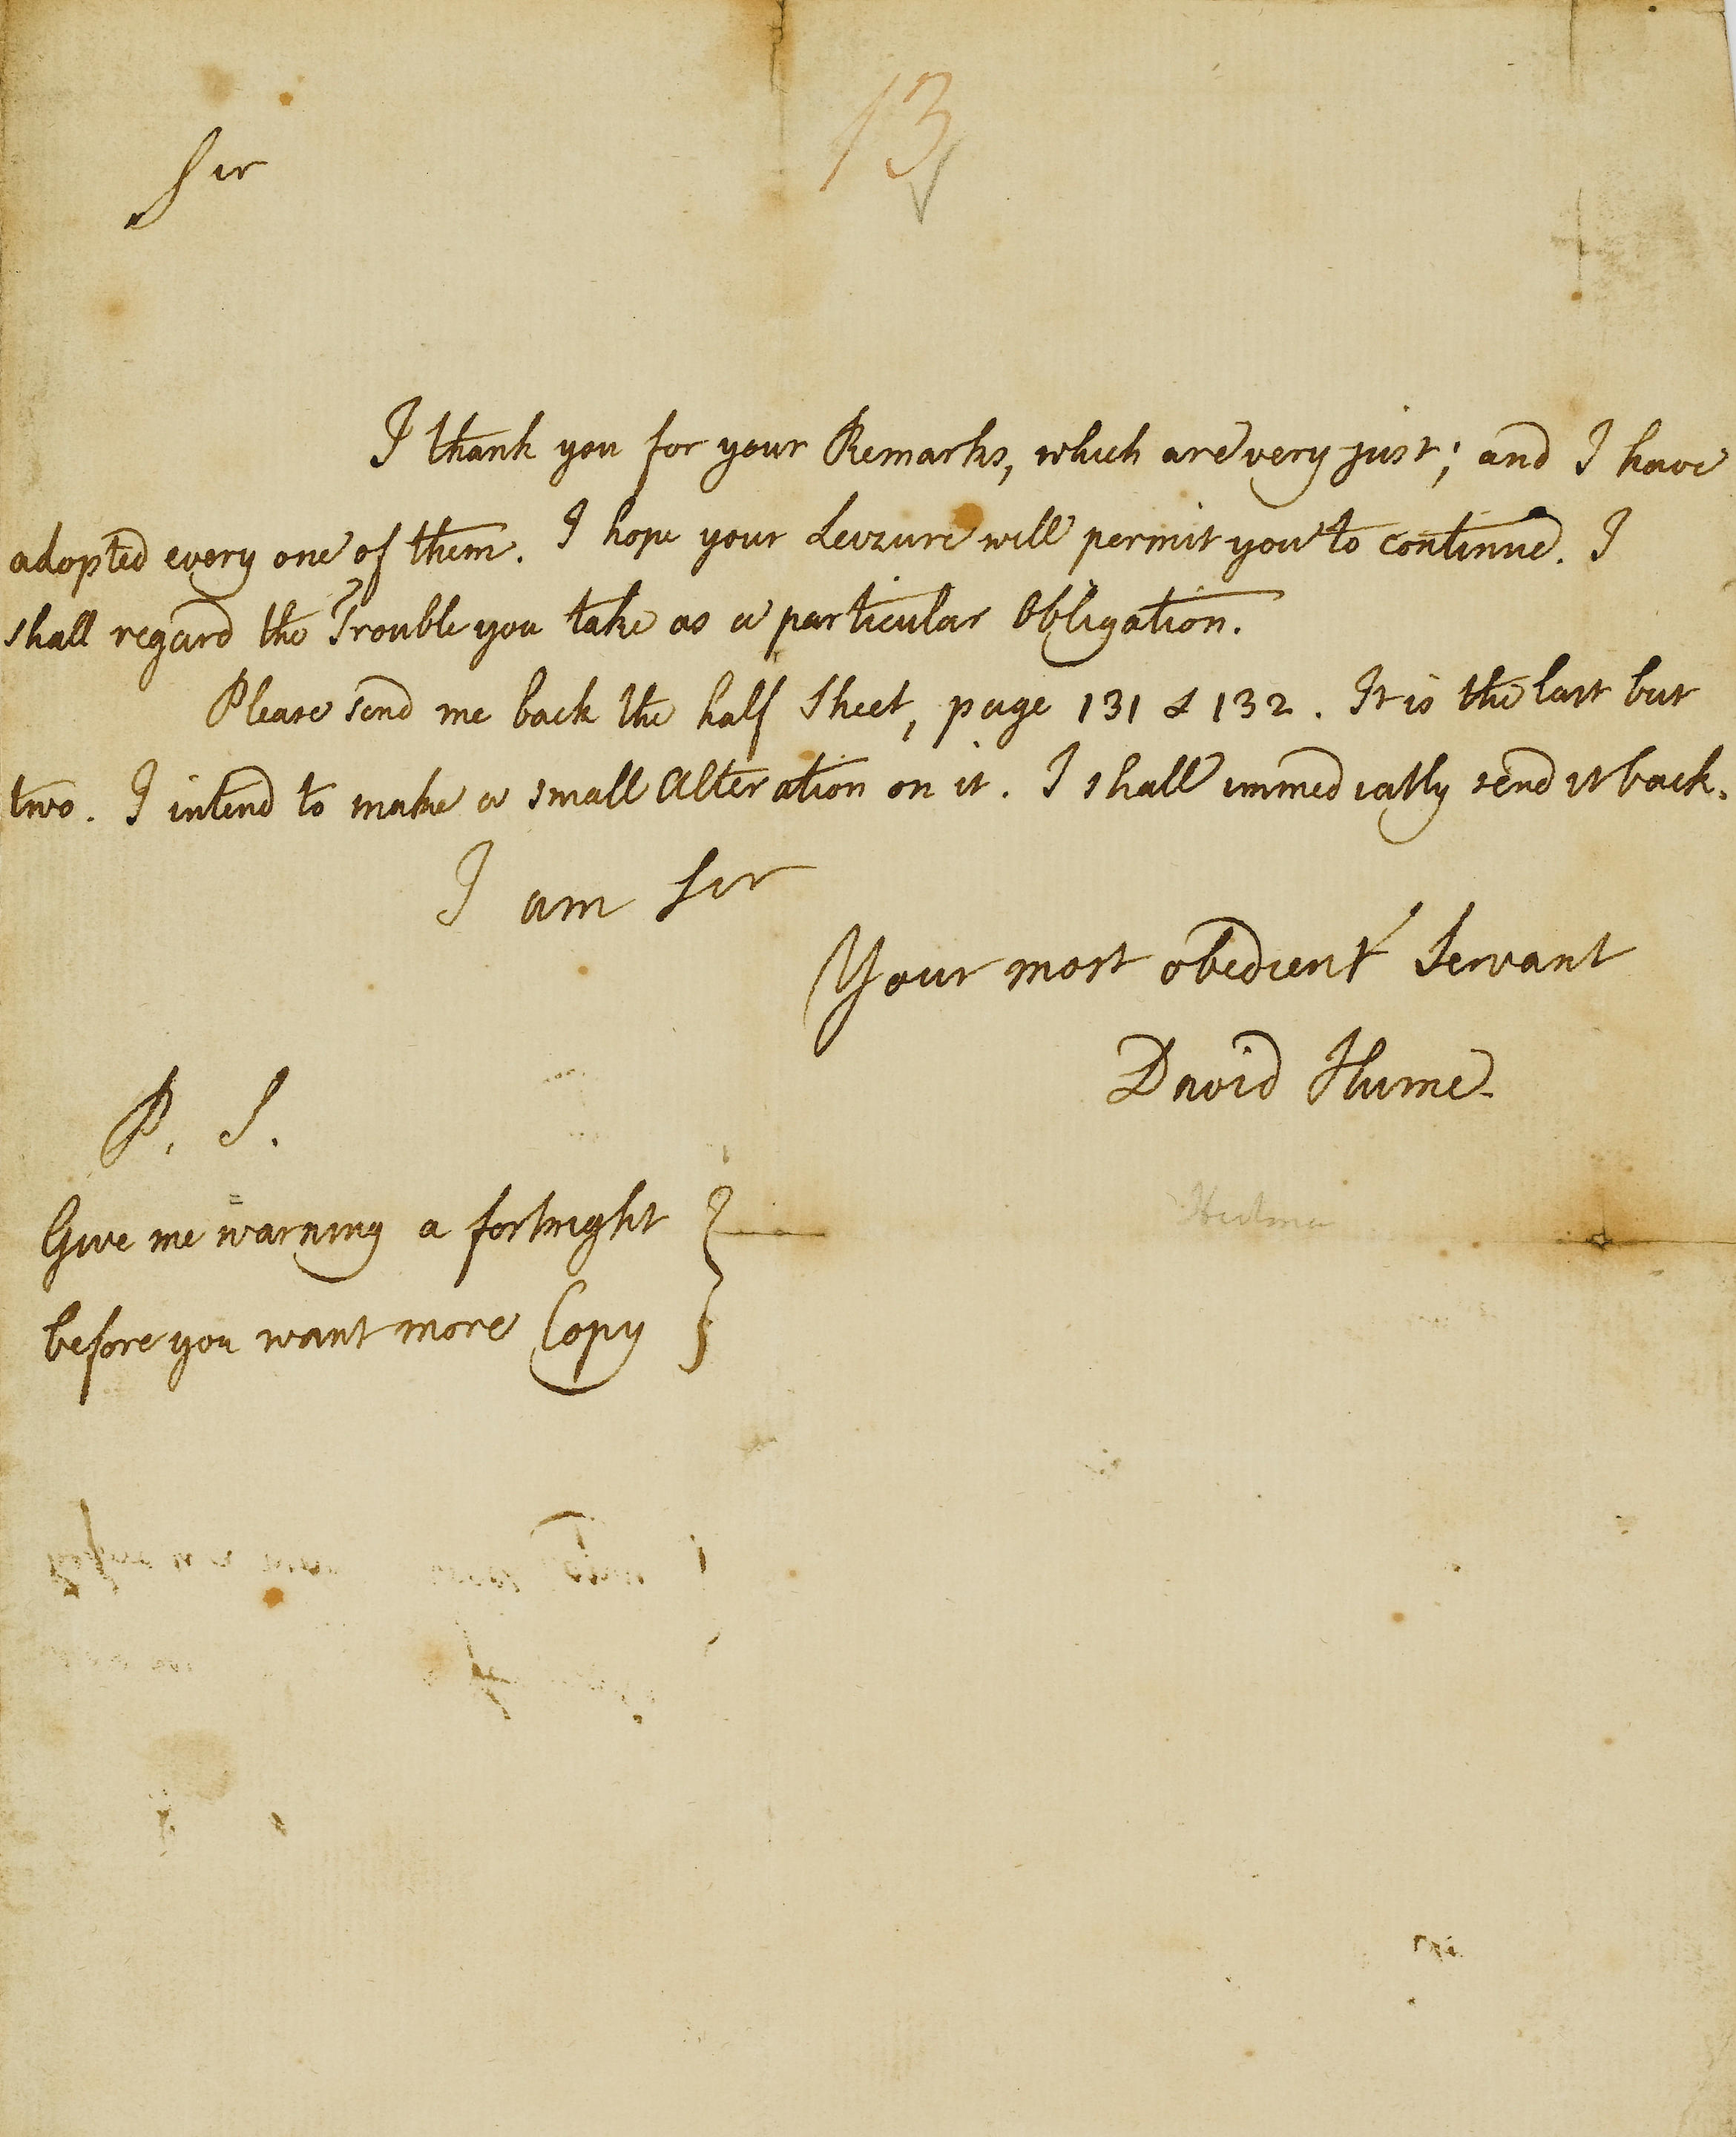 13
Sir
I thank you for your Remarks, which are very just; and I have
adopted every one of them. I hope your Leizure will permit you to continue. I
shall regard the Trouble you take as a particular Obligation.
Please send me back the half Sheet, page 131 & 132. It is the last but
two. I intend to make a small Alteration on it. I shall immediatly send it back.
I am Sir
Your most obedient Servant
David Hume.
P. S.
Give me warning a fortnight
before you want more Copy